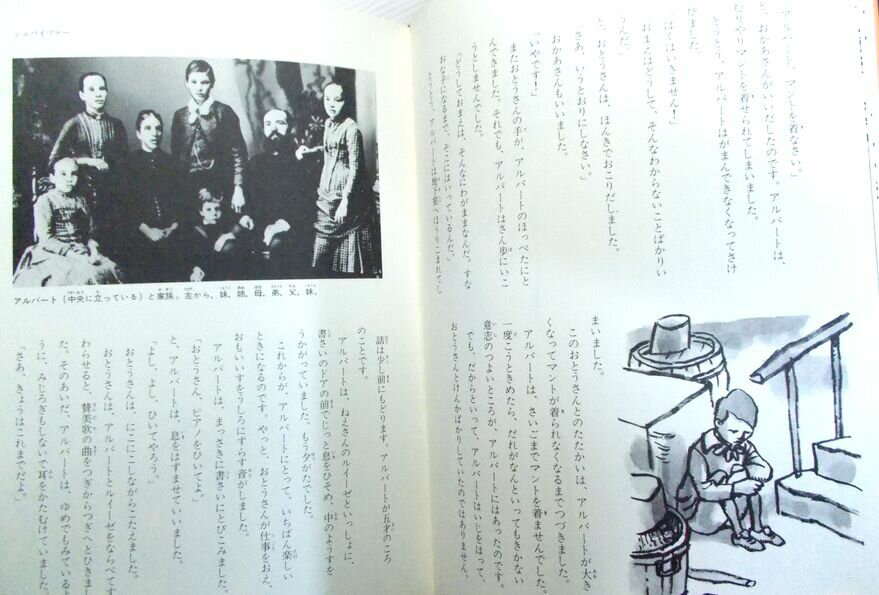 「アルバート、マントを着なさい。」
と、おかあさんがいいだしたのです。アルバートは、
むりやりマントを着せられてしまいました。
とうとう、アルバートはがまんできなくなってさけ
びました。
「ぼくはいきません！」
「おまえはどうして、そんなわからないことばかりい
うんだ。」
と、おとうさんは、ほんきでおこりだしました。
「さあ、いうとおりにしなさい。」
おかあさんもいいました。
「いやです！」
またおとうさんの手が、アルバートのほっぺたにと
んできました。それでも、アルバートはさん歩にいこ
うとしませんでした。
「どうしておまえは、そんなにわがままなんだ。すな
おな子になるまで、そこにはいっているんだ。」
とうとう、アルバートは地下室へほうりこまれてし
まいました。
このおとうさんとのたたかいは、アルバートが大き
くなってマントが着られなくなるまでつづきました。
アルバートは、さいごまでマントを着ませんでした。
一度こうときめたら、だれがなんといってもきかない
意志のつよいところが、アルバートにはあったのです。
でも、だからといって、アルバートはいじをはって、
おとうさんとけんかばかりしていたのではありません。
シュバイツァー
アルバート（中央に立っている）と家族。左から、妹、姉、母、弟、父、妹。
話は少し前にもどります。アルバートが五才のころ
のことです。
アルバートは、ねえさんのルイーゼといっしょに、
書さいのドアの前でじっと息をひそめ、中のようすを
うかがっていました。もう夕がたでした。
これからが、アルバートにとって、いちばん楽しい
ときになるのです。やっと、おとうさんが仕事をおえ、
おもいいすをうしろにずらす音がしました。
アルバートは、まっさきに書さいにとびこみました。
「おとうさん、ピアノをひいてよ。」
と、アルバートは、息をはずませていいました。
「よし、よし、ひいてやろう。」
おとうさんは、にこにこしながらこたえました。
おとうさんは、アルバートとルイーゼをならべてす
わらせると、賛美歌の曲をつぎからつぎへとひきまし
た。そのあいだ、アルバートは、ゆめでもみているよ
うに、みじろぎもしないで耳をかたむけていました。
「さあ、きょうはこれまでだよ。」